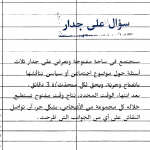 سؤال على جدار
سنجتمع في ساحة مفتوحة ونعرض على جدار ثلاث
أسئلة حول موضوع اجتماعي أو سياسي نناقشها
بانفتاح وحرية ويحق لكل متحدث/ة 3 دقائق.
بعد انتهاء الوقت المحدد، نتاح وقت مفتوح نستطيع
خلاله كل مجموعة من الأشخاص، بشكل حر، أن تواصل
النقاش على أي من الجوانب التي طرحت.